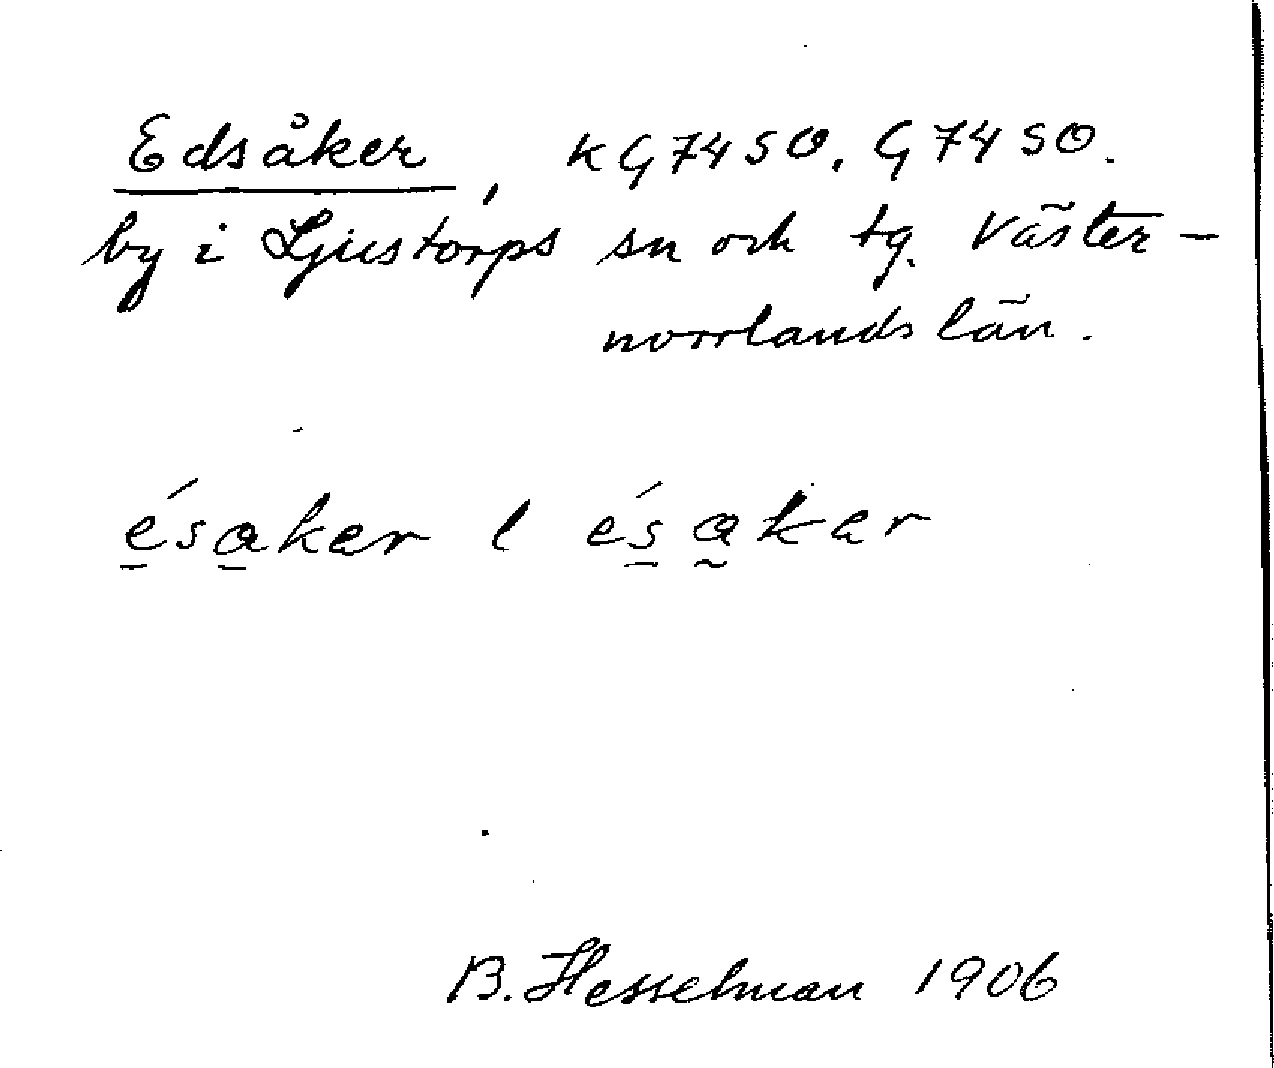 Edsåker, KG74SO. G74SO.
by i Ljustorps sn och tg. Väster-
norrlands län.
ésaker l ésaker
B. Hesselman 1906